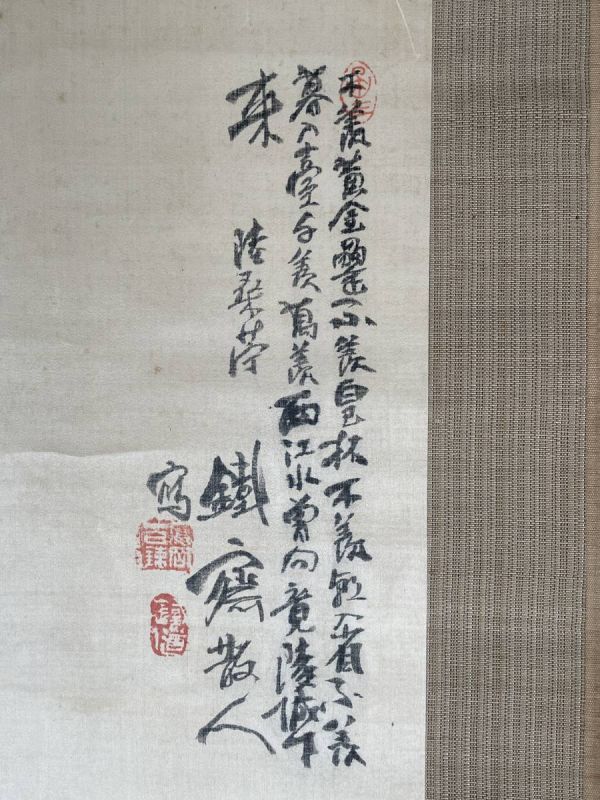 不羨黃金罍不羨白玉杯不羨朝入省不羨
暮入臺千羨萬羨西江水曾向竟陵城下
来
陸桑苧
鐵齋散人
寫
富岡百錬